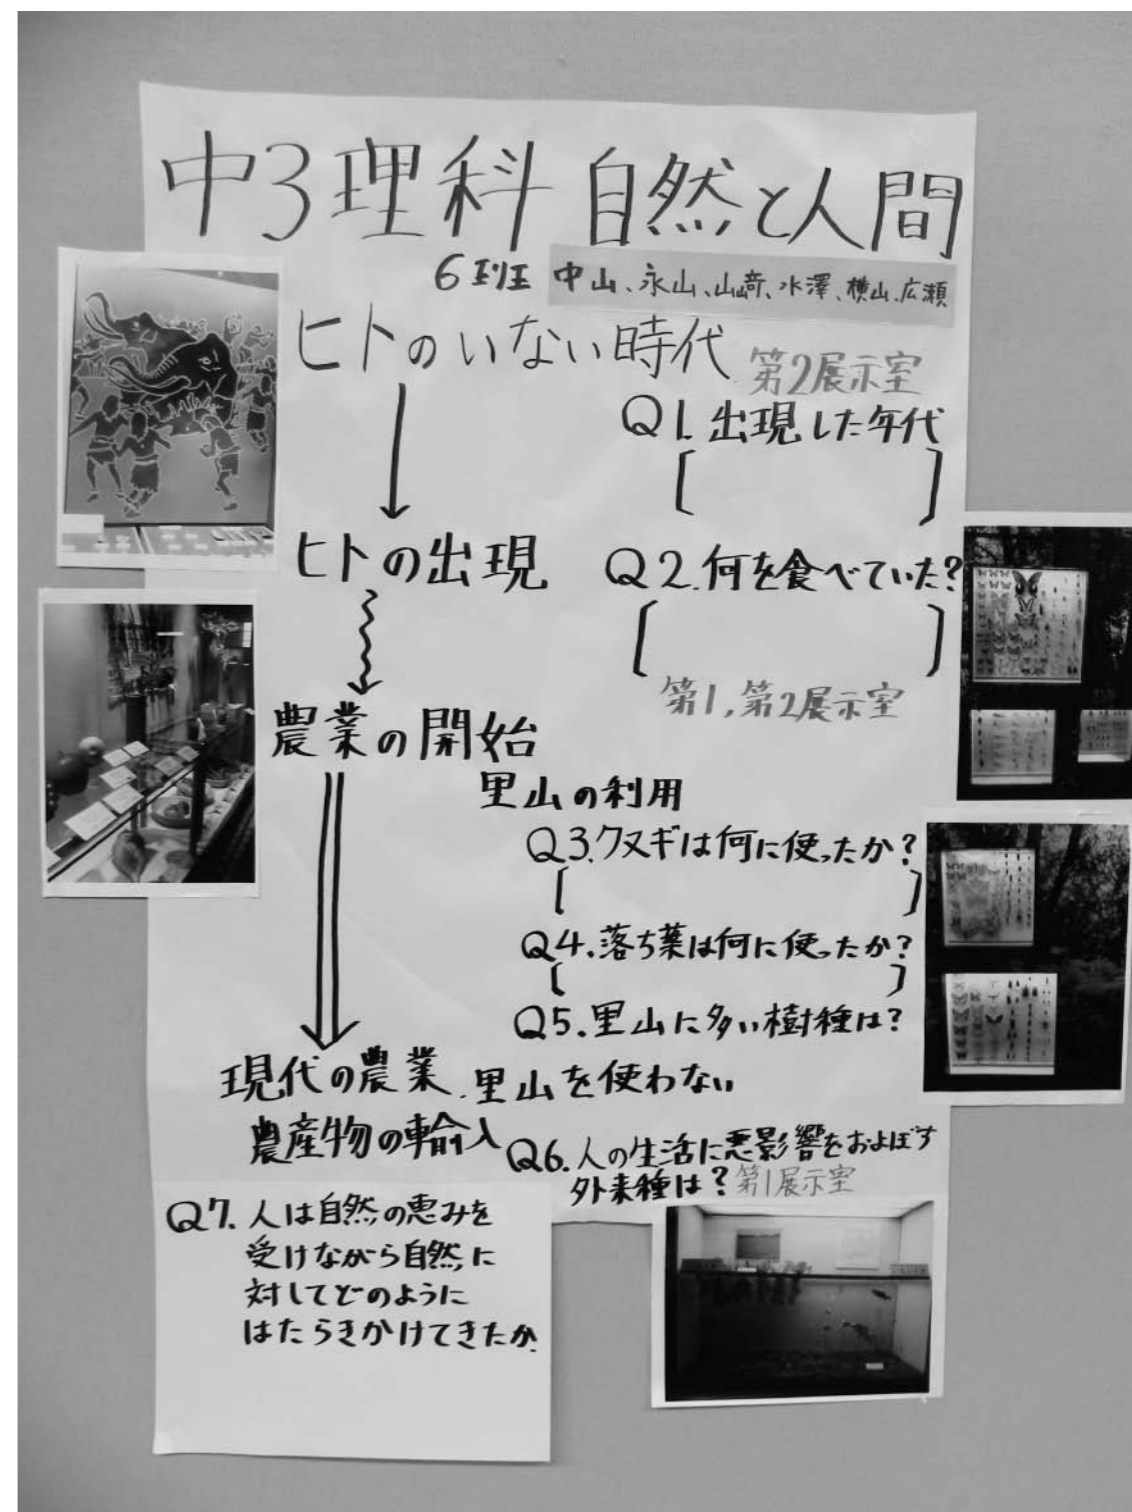 中3理科 自然と人間
6班 中山、永山、山﨑、水澤、横山、広瀬
ヒトのいない時代
第2展示室
Q1.出現した年代
[ ]
ヒトの出現
Q2.何を食べていた?
[ ]
第1,第2展示室
農業の開始
里山の利用
Q3.クヌギは何に使ったか?
[ ]
Q4.落ち葉は何に使ったか?
[ ]
Q5.里山に多い樹種は?
現代の農業.里山を使わない
農産物の輸入
Q6.人の生活に悪影響をおよぼす
外来種は?第1展示室
Q7.人は自然の恵みを
受けながら自然に
対してどのように
はたらきかけてきたか.